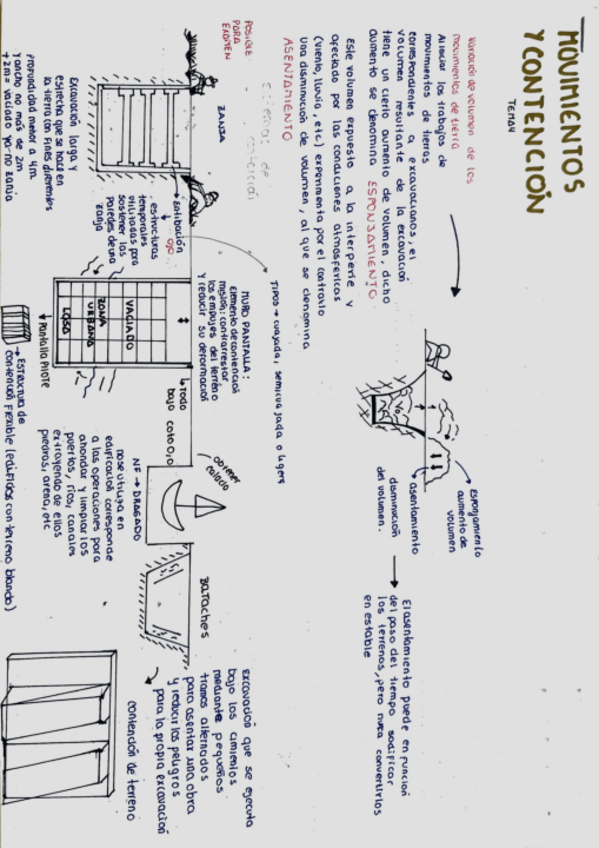 MOVIMIENTOS
Y CONTENCIÓN
TEMA 4
Variación de volumen de los
movimientos de tierra
Al iniciar los trabajos de
movimientos de tierras
correspondientes a excavaciones, el
volumen resultante de la excavación
tiene un cierto aumento de volumen, dicho
aumento se denomina ESPONJAMIENTO
Este volumen expuesto a la intemperie y
afectado por las condiciones atmosféricas
(viento, lluvia, etc) experimenta por el contrario
una disminución de volumen, al que se denomina
ASENTAMIENTO
Esponjamiento
aumento de
volumen
asentamiento
disminución
del volumen.
Vo
El asentamiento puede en función
del paso del tiempo
los terrenos, pero nunca convertirlos
en estable
POSIBLE
PARA
EXAMEN
ZANJA
TIPOS → cuajada, semicuajada o ligera
→ Entibación
OJO
estructuras
temporales
utilizadas para
sostener las
paredes de una
zanja
Excavación larga y
estrecha que se hace en
la tierra con fines diferentes
profundidad menor a 4m.
y ancho no más de 2m
+ 2m = vaciado ya no zanja
MURO PANTALLA:
elemento de contención
misión: contrarrestar
los empujes del terreno
y reducir su deformación
VACIADO
ZONA
URBANA
LOSA
→ Todo
bajo cota 0,0
→ Pantalla Pilote
→ Estructura de
contención flexible (edificios con terreno blando)
obtener
calado
NF → DRAGADO
no se utiliza en
edificación corresponde
a las operaciones para
ahondar y limpiar los
puertos, ríos, canales
extrayendo de ellos
piedras, arena, etc
Bataches
excavación que se ejecuta
bajo los cimientos
mediante pequeños
tramos alternados
para asentar una obra
y reducir los peligros
para la propia excavación
contención de terreno